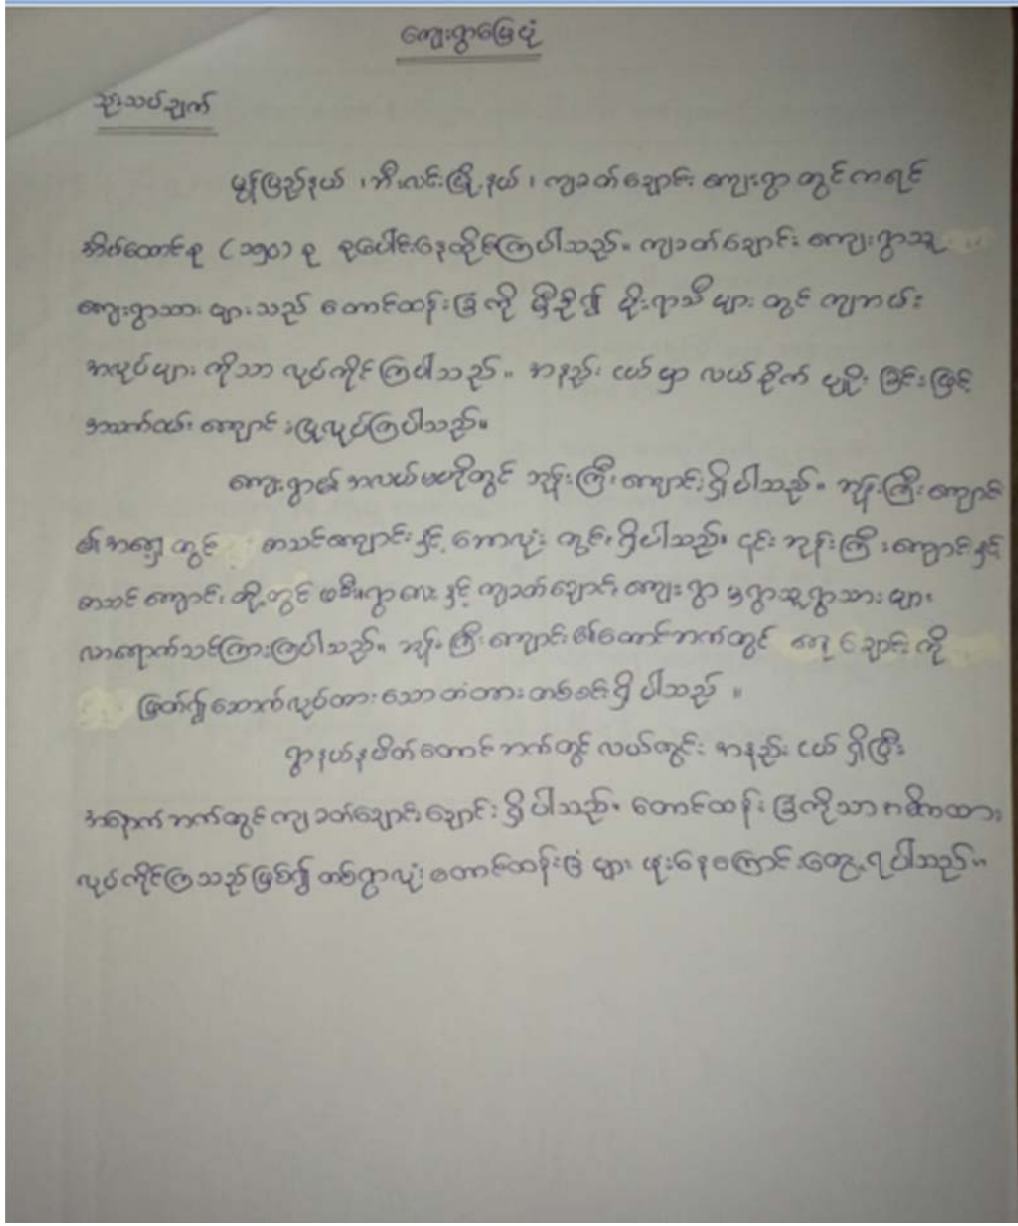 ကျေးရွာမြေပုံ
သုံးသပ်ချက်
မွန်ပြည်နယ် ၊ ဘီးလင်းမြို့နယ် ၊ ကျခတ်ချောင်း ကျေးရွာ တွင် ကရင်
အိမ်ထောင်စု (၁၅၀) စု စုပေါင်းနေထိုင်ကြပါသည်။ ကျခတ်ချောင်း ကျေးရွာသူ
ကျေးရွာသား များသည် တောင်ထန်းခြံ ကို မှီခို၍ မိုးရာသီ များ တွင် ကျဘမ်း
အလုပ်များ ကိုသာ လုပ်ကိုင်ကြပါသည်။ အနည်း ငယ် မှာ လယ်စိုက် ပျိုး ခြင်းဖြင့်
အသက်မွေး ကျောင်းပြုလုပ်ကြပါသည်။
ကျေးရွာ၏ အလယ်ဗဟိုတွင် ဘုန်းကြီးကျောင်းရှိပါသည်။ ဘုန်းကြီးကျောင်း
၏အရှေ့တွင် စာသင်ကျောင်းနှင့် ဘောလုံး ကွင်းရှိပါသည်။ ၎င်း ဘုန်းကြီးကျောင်းနှင့်
စာသင် ကျောင်း တို့တွင် ရွာလေး နှင့် ကျခတ်ချောင်း ကျေးရွာ မှ ရွာသူရွာသား များ
လာရောက်သင်ကြားကြပါသည်။ ဘုန်းကြီးကျောင်း၏တောင်ဘက်တွင် ချောင်းကို
ဖြတ်၍ ဆောက်လုပ်ထားသော တံတားတစ်စင်းရှိပါသည် ။
ရွာနယ်နမိတ်တောင်ဘက်တွင် လယ်ကွင်း အနည်း ငယ် ရှိပြီး
အနောက်ဘက်တွင် ကျခတ်ချောင်းချောင်း ရှိပါသည်။ တောင်ထန်း ခြံကိုသာ ဂရိုကထား
လုပ်ကိုင်ကြသည်ဖြစ်၍ တစ်ရွာလုံး တောင်ထန်းခြံ များ ဖုံးနေကြောင်းတွေ့ရပါသည်။